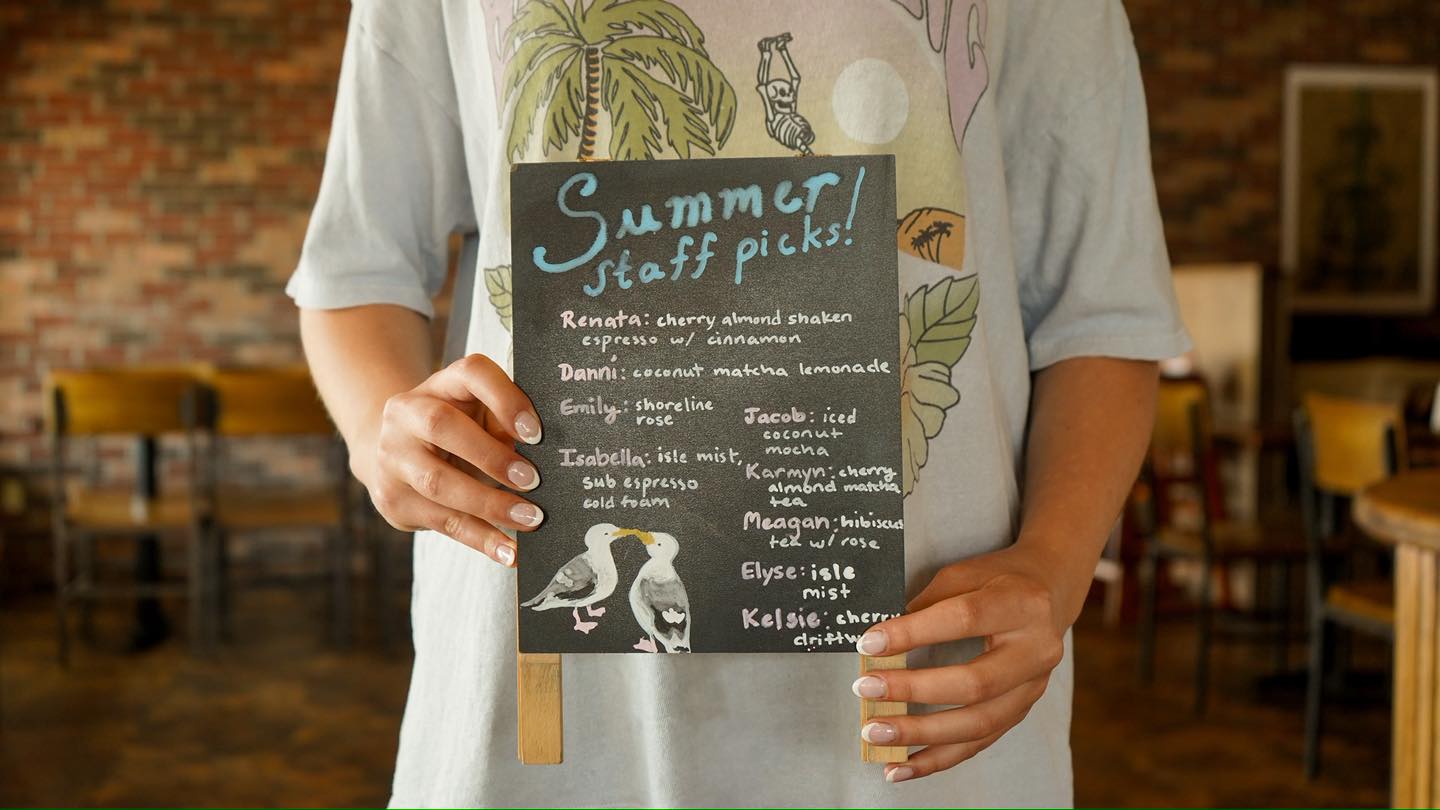 Summer!
staff picks!
Renata: cherry almond shaken
espresso w/ cinnamon
Danni: coconut matcha lemonade
Emily: shoreline
rose
Isabella: isle mist,
sub espresso
cold foam
Jacob: iced
coconut
mocha
Karmyn: cherry
almond matcha
tea
Meagan: hibiscus
tea w/ rose
Elyse: isle
mist
Kelsie: cherry